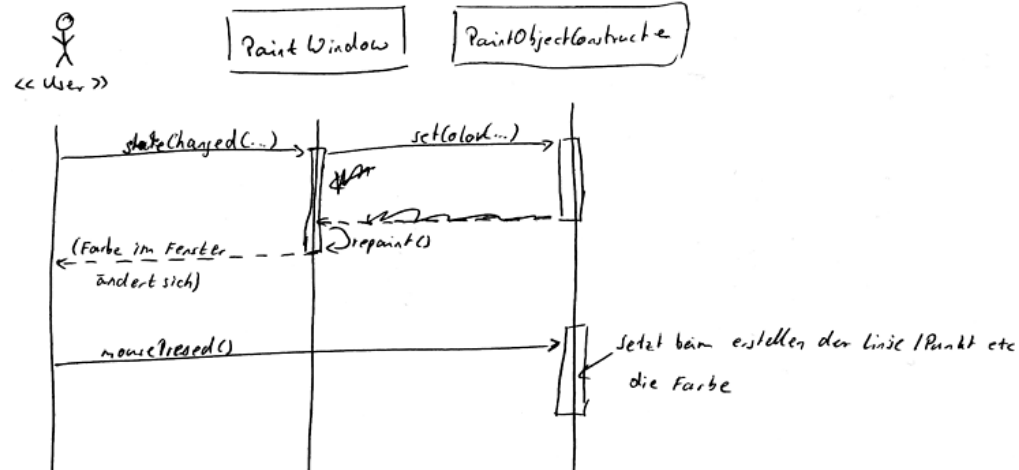 << User >>
PaintWindow
PaintObjectConstructer
stateChanged(...)
setColor(...)
repaint()
(Farbe im Fenster
ändert sich)
mousePresed()
setzt beim erstellen der Linie / Punkt etc
die Farbe